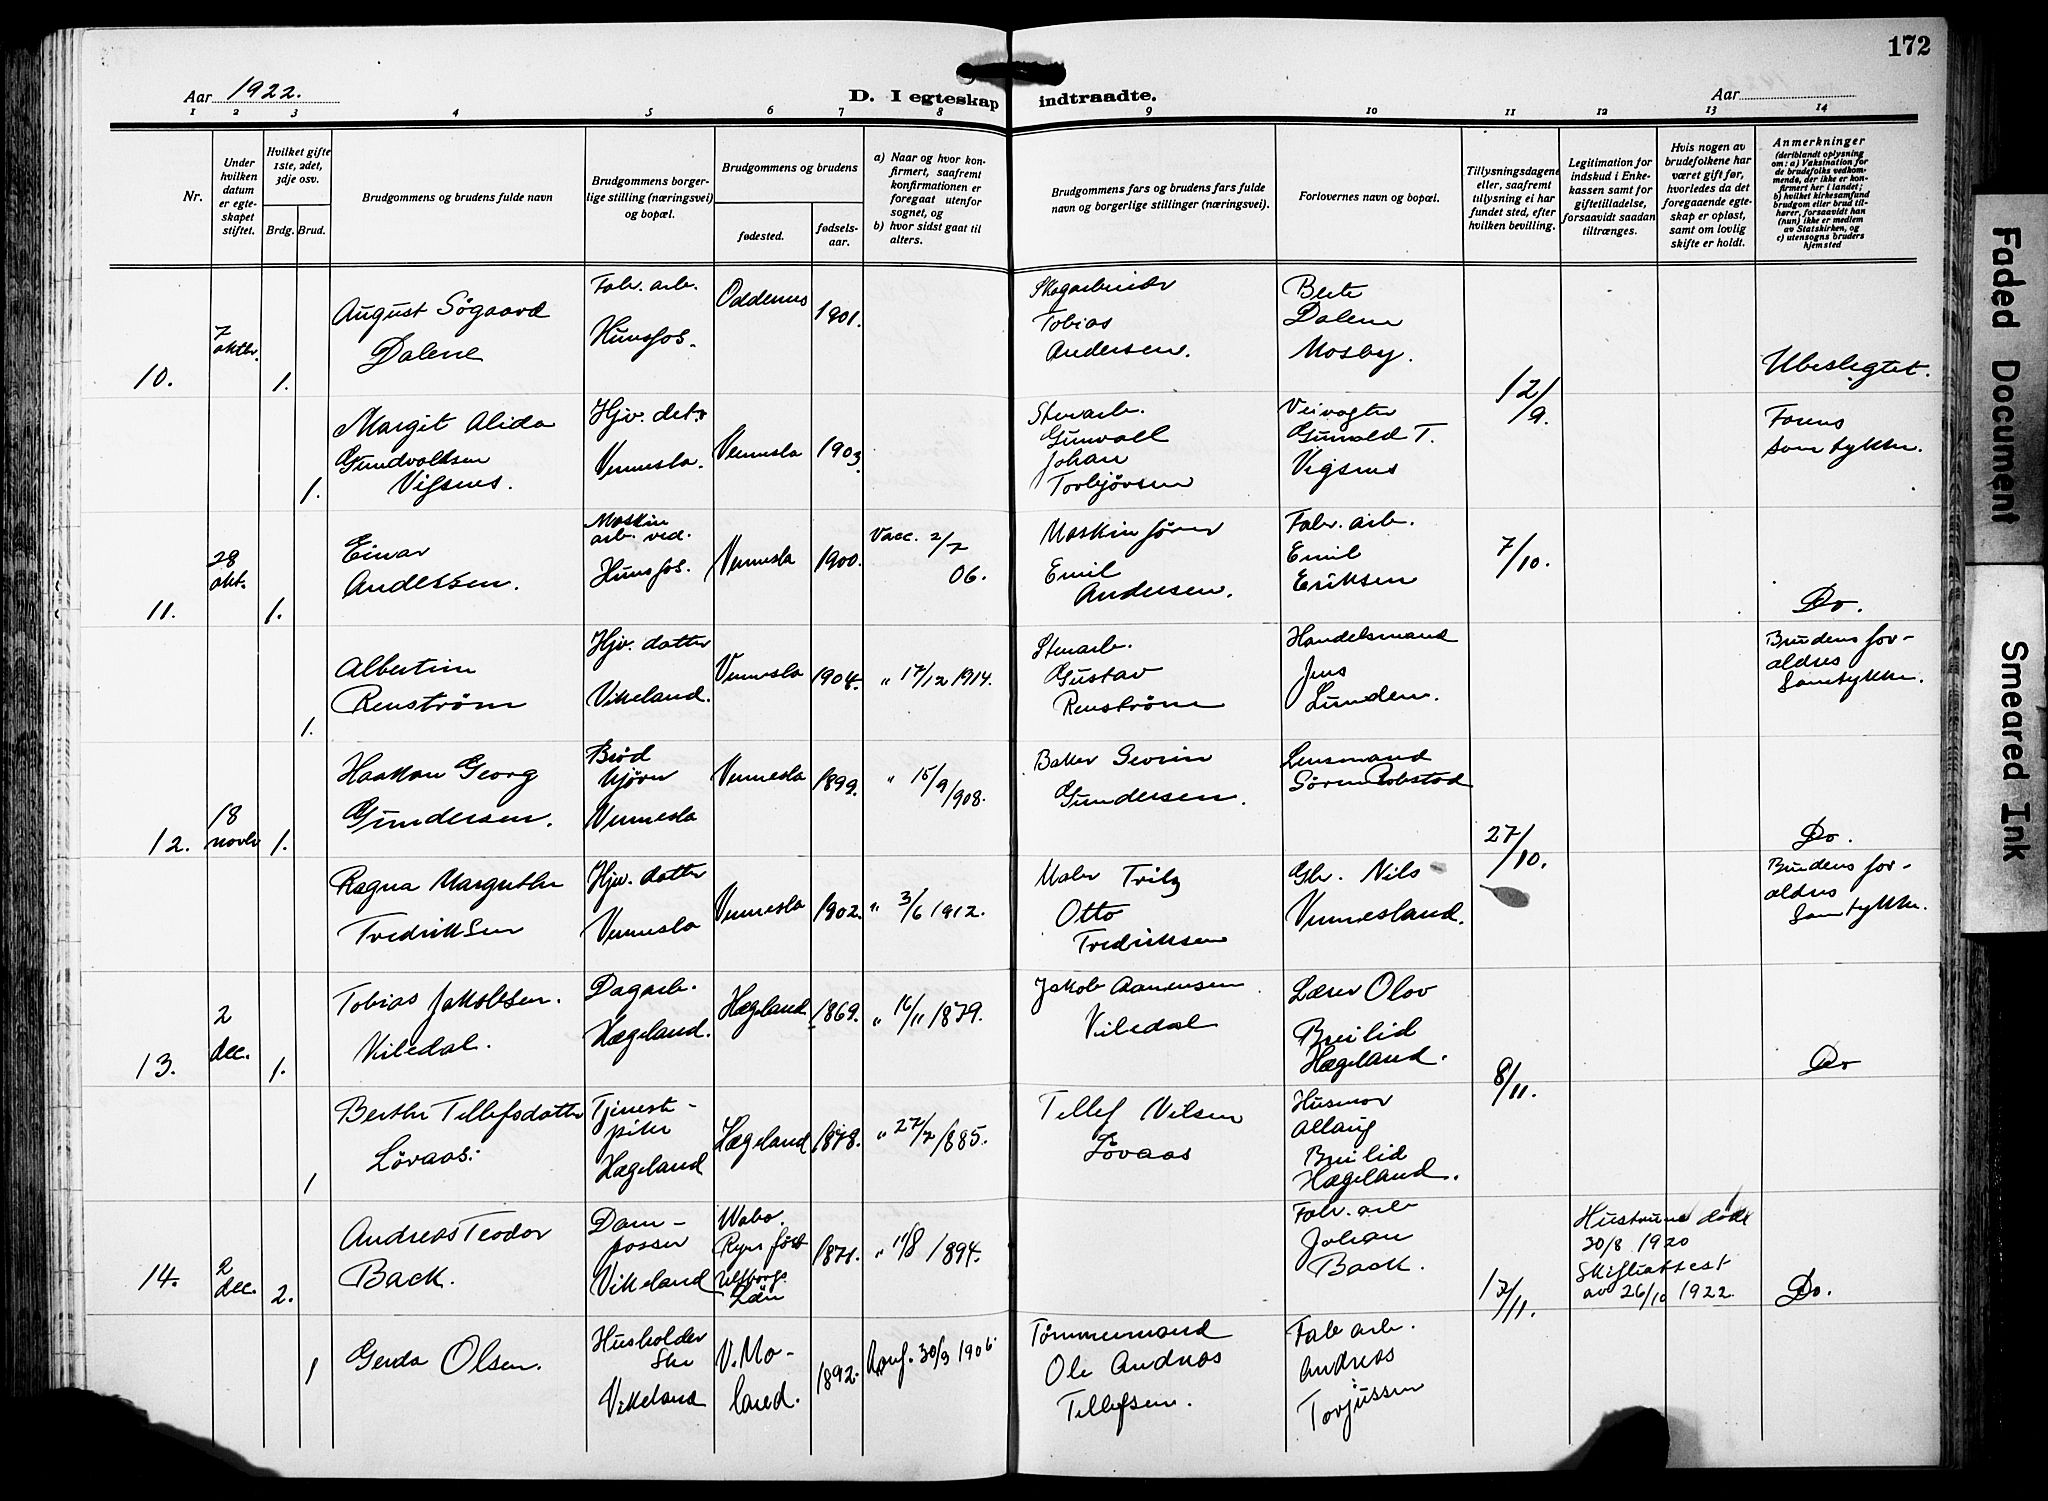 172
Aar 1922.
D. I egteskap indtraadte.
Aar
1 2 3 4 5 6 7 8 9 10 11 12 13 14
Nr.
Under hvilken datum er egteskapet stiftet.
Hvilket gifte 1ste, 2det, 3dje osv.
Brdg. Brud.
Brudgommens og brudens fulde navn
Brudgommens borgerlige stilling (næringsvei) og bopæl.
Brudgommens og brudens
fødested.
fødselsaar.
a) Naar og hvor konfirmert, saafremt konfirmationen er foregaat utenfor sognet, og
b) hvor sidst gaat til alters.
Brudgommens fars og brudens fars fulde navn og borgerlige stillinger (næringsvei).
Forlovernes navn og bopæl.
Tillysningsdagene eller, saafremt tillysning ei har fundet sted, efter hvilken bevilling.
Legitimation for indskud i Enkekassen samt for giftetilladelse, forsaavidt saadan tiltrænges.
Hvis nogen av brudefolkene har været gift før, hvorledes da det foregaaende egteskap er opløst, samt om lovlig skifte er holdt.
Anmerkninger
(deriblandt oplysning om: a) Vaksination for de brudefolks vedkommende, der ikke er konfirmert her i landet; b) hvilket kirkesamfund brudgom eller brud tilhører, forsaavidt han (hun) ikke er medlem av Statskirken, og c) utensogns bruders hjemsted
10. 7 oktbr. 1. August Søgaard Dalene
Fabr. arb. Hunsfos.
Oddernes 1901.
Skogarbeider Tobias Andersen.
Berte Dalene Mosby.
12/9.
Ubeslegtet.
1. Margit Alida Gundvaldsen Vigsnes.
Hjv. datr Vennesla.
Vennesla 1903.
Stenarb. Gunvall Johan Torbjørnsen
Veivogter Gunvald T. Vigsnes
Farens samtykke.
11. 28 okt. 1. Einar Andersen.
Maskin arb. ved. Hunsfos.
Vennesla 1900.
Vacc. 2/7 06.
Maskinfører Emil Andersen.
Fabr. arb. Emil Eriksen
7/10.
Do.
1. Albertine Renstrøm
Hjv. datter Vikeland.
Vennesla 1904.
" 17/12 1914.
Stenarb. Gustav Renstrøm
Handelsmand Jens Lunden.
Brudens forældres Samtykke.
12. 18 novbr 1. Haakon Georg Gundersen.
Brød kjører Vennesla
Vennesla 1899.
" 15/9 1908.
Baker Severin Gundersen.
Lensmand Søren Robstad
27/10.
Do.
Ragna Margrethe Fredriksen
Hjv. datter Vennesla
Vennesla 1902.
" 3/6 1912.
Maler Fritz Otto Fredriksen
Gbr. Nils Vennesland.
Brudens forældres Samtykke.
13. 2 dec. 1. Tobias Jakobsen. Kiledal.
Dagarb. Hægeland.
Hægeland 1869.
" 16/11 1879.
Jakob Aanensen Kiledal
Lærer Olav Breilid Hægeland.
8/11.
Do
1 Berthe Tellefsdatter Løvaas.
Tjenestepike Hægeland
Hægeland 1878.
" 27/7 1885.
Tellef Nilsen Løvaas
Husmor Allaug Breilid Hægeland.
14. 2 dec. 2. Andreas Teodor Back.
Dampasser Vikeland
1871.
" 11/8 1894.
Fabr. arb Johan Back.
17/11.
Hustruens død 30/8 1920 Skifteattest av 26/10 1922.
Do.
1 Gerda Olsen.
Husholderske Vikeland
V. Moland. 1892.
Konf. 30/9 1906
Tømmermand Ole Andreas Tellefsen.
Fabr arb. Andreas Torjussen
Faded Document
Smeared Ink